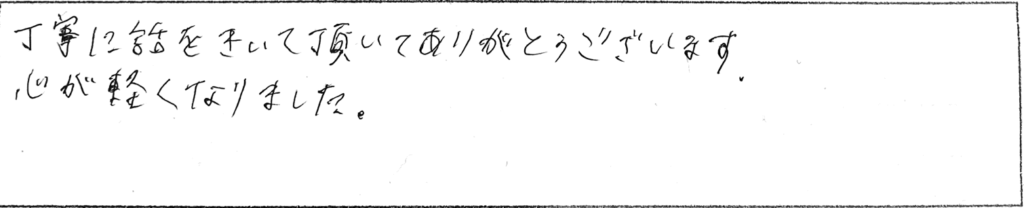 丁寧に話をきいて頂いてありがとうございます.
心が軽くなりました。